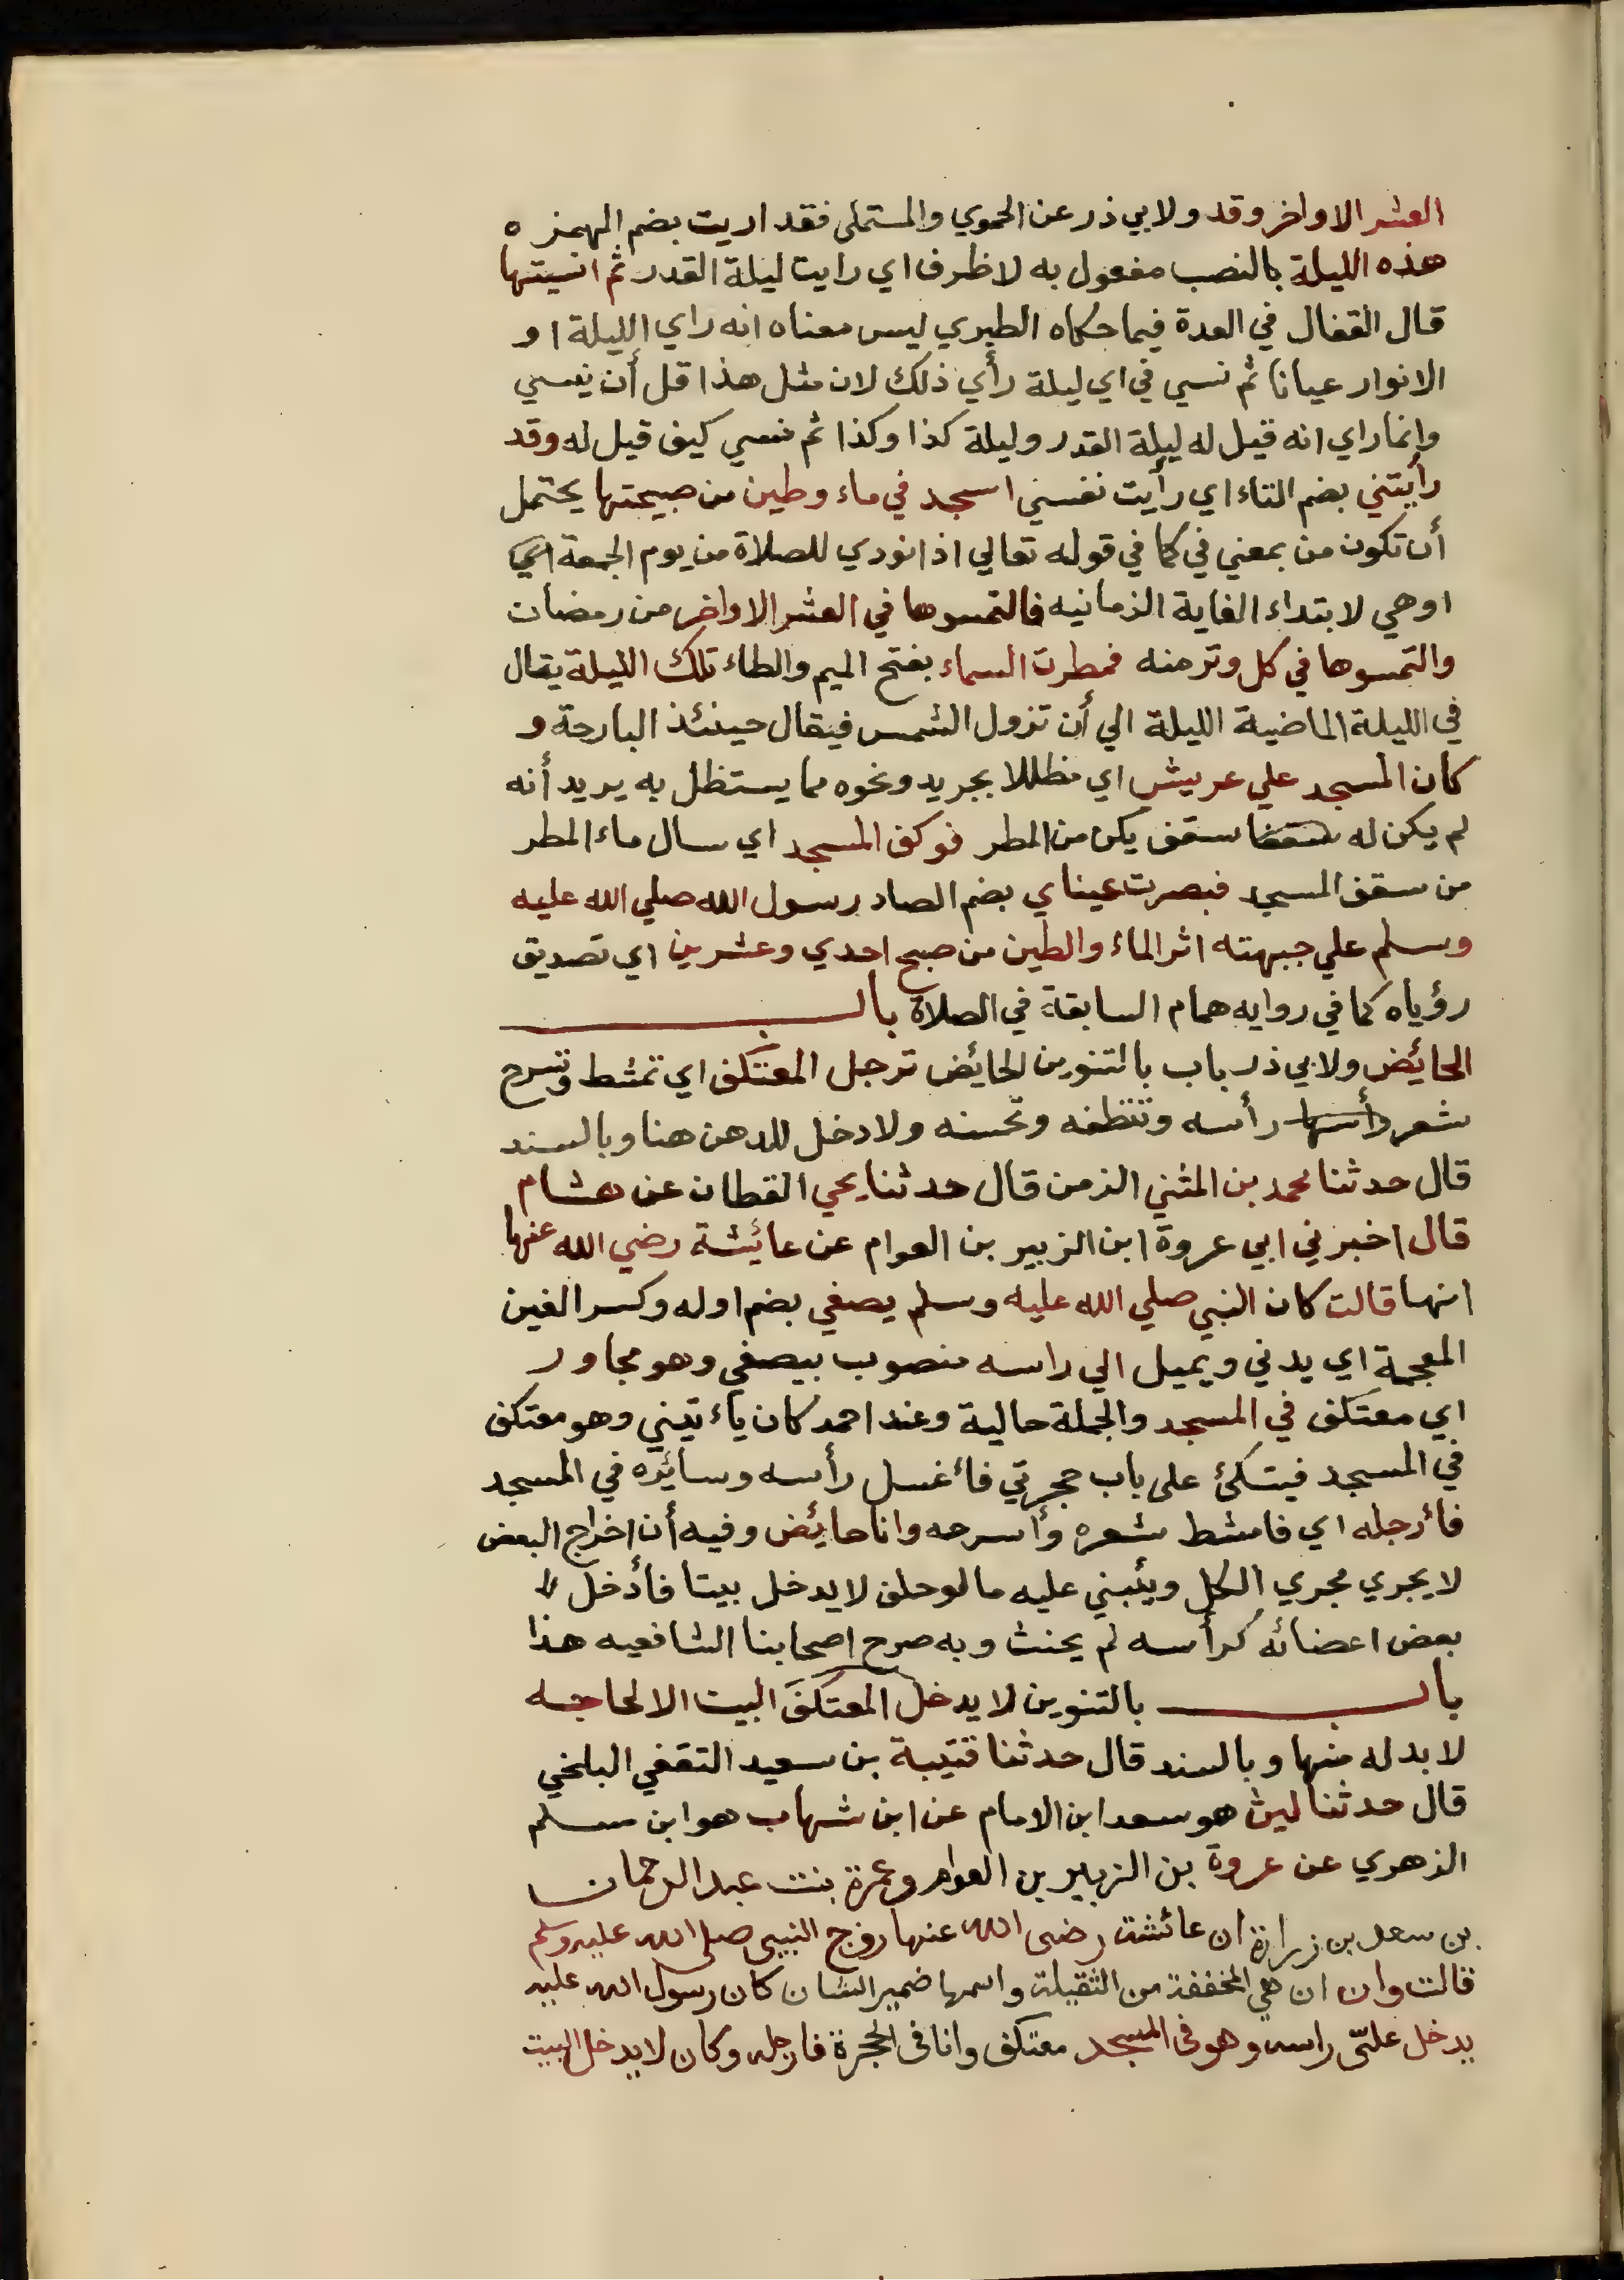 العشر الاواخر وقد ولابي ذر عن الحموي والمستملي فقد اريت بضم الهمزه
هذه الليلة بالنصب مفعول به لا ظرف اي رايت ليلة القدر ثم انسيتها
قال القفال في العدة فيما حكاه الطبري ليس معناه انه راي الليلة او
الانوار عيانا ثم نسي في اي ليلة رأي ذلك لان مثل هذا قل أن ينسي
وانما راي انه قيل له ليلة القدر وليلة كذا وكذا ثم نسي كيف قيل له وقد
رأيتني بضم التاء اي رأيت نفسي اسجد في ماء وطين من صبيحتها يحتمل
أن تكون من بمعني في كما في قوله تعالي اذا نودي للصلاة من يوم الجمعة اي
اوهي لابتداء الغاية الزمانيه فالتمسوها في العشر الاواخر من رمضان
والتمسوها في كل وتر منه فمطرت السماء بفتح الميم والطاء تلك الليلة يقال
في الليلة الماضية الليلة الي أن تزول الشمس فيقال حينئذ البارحة و
كان المسجد علي عريش اي مظللا بجريد ونحوه مما يستظل به يريد أنه
لم يكن له سقفا سقف يكن من المطر فوكف المسجد اي سال ماء المطر
من سقف المسجد فبصرت عيناي بضم الصاد رسول الله صلي الله عليه
وسلم علي جبهته اثر الماء والطين من صبح احدي وعشرين اي تصديق
رؤياه كما في روايه همام السابقة في الصلاة باب
الحائض ولابي ذر باب بالتنوين الحائض ترجل المعتكف اي تمشط وتسرح
شعر رأسها رأسه وتنظفه وتحسنه ولا دخل للدهن هنا وبالسند
قال حدثنا محمد بن المثني الزمن قال حدثنا يحي القطان عن هشام
قال اخبرني ابي عروة ابن الزبير بن العوام عن عائشة رضي الله عنها
انها قالت كان النبي صلي الله عليه وسلم يصغي بضم اوله وكسر الغين
المعجمة اي يدني ويميل الي راسه منصوب بيصغي وهو مجاور
اي معتكف في المسجد والجملة حالية وعند احمد كان يأتيني وهو معتكف
في المسجد فيتكئ على باب حجرتي فأغسل رأسه وسائره في المسجد
فأرجله اي فامشط شعره وأسرحه وانا حائض وفيه أن اخراج البعض
لا يجري مجري الكل ويئبني عليه ما لو حلف لا يدخل بيتا فأدخل
بعض اعضائه كرأسه لم يحنث وبه صرح اصحابنا الشافعيه هذا
باب بالتنوين لا يدخل المعتكف البيت الا لحاجه
لا بد له منها وبالسند قال حدثنا قتيبة بن سعيد الثقفي البلخي
قال حدثنا ليث هو سعد ابن الامام عن ابن شهاب هو ابن مسلم
الزهري عن عروة بن الزبير بن العوام وعمرة بنت عبد الرحمان
بن سعد بن زرارة ان عائشة رضى الله عنها زوج النبي صلى الله عليه وسلم
قالت وان ان هي المخففة من الثقيلة واسمها ضمير الشان كان رسول الله عليه
يدخل عليّ راسه وهو في المسجد معتكف وانا في الحجرة فارجله وكان لا يدخل البيت